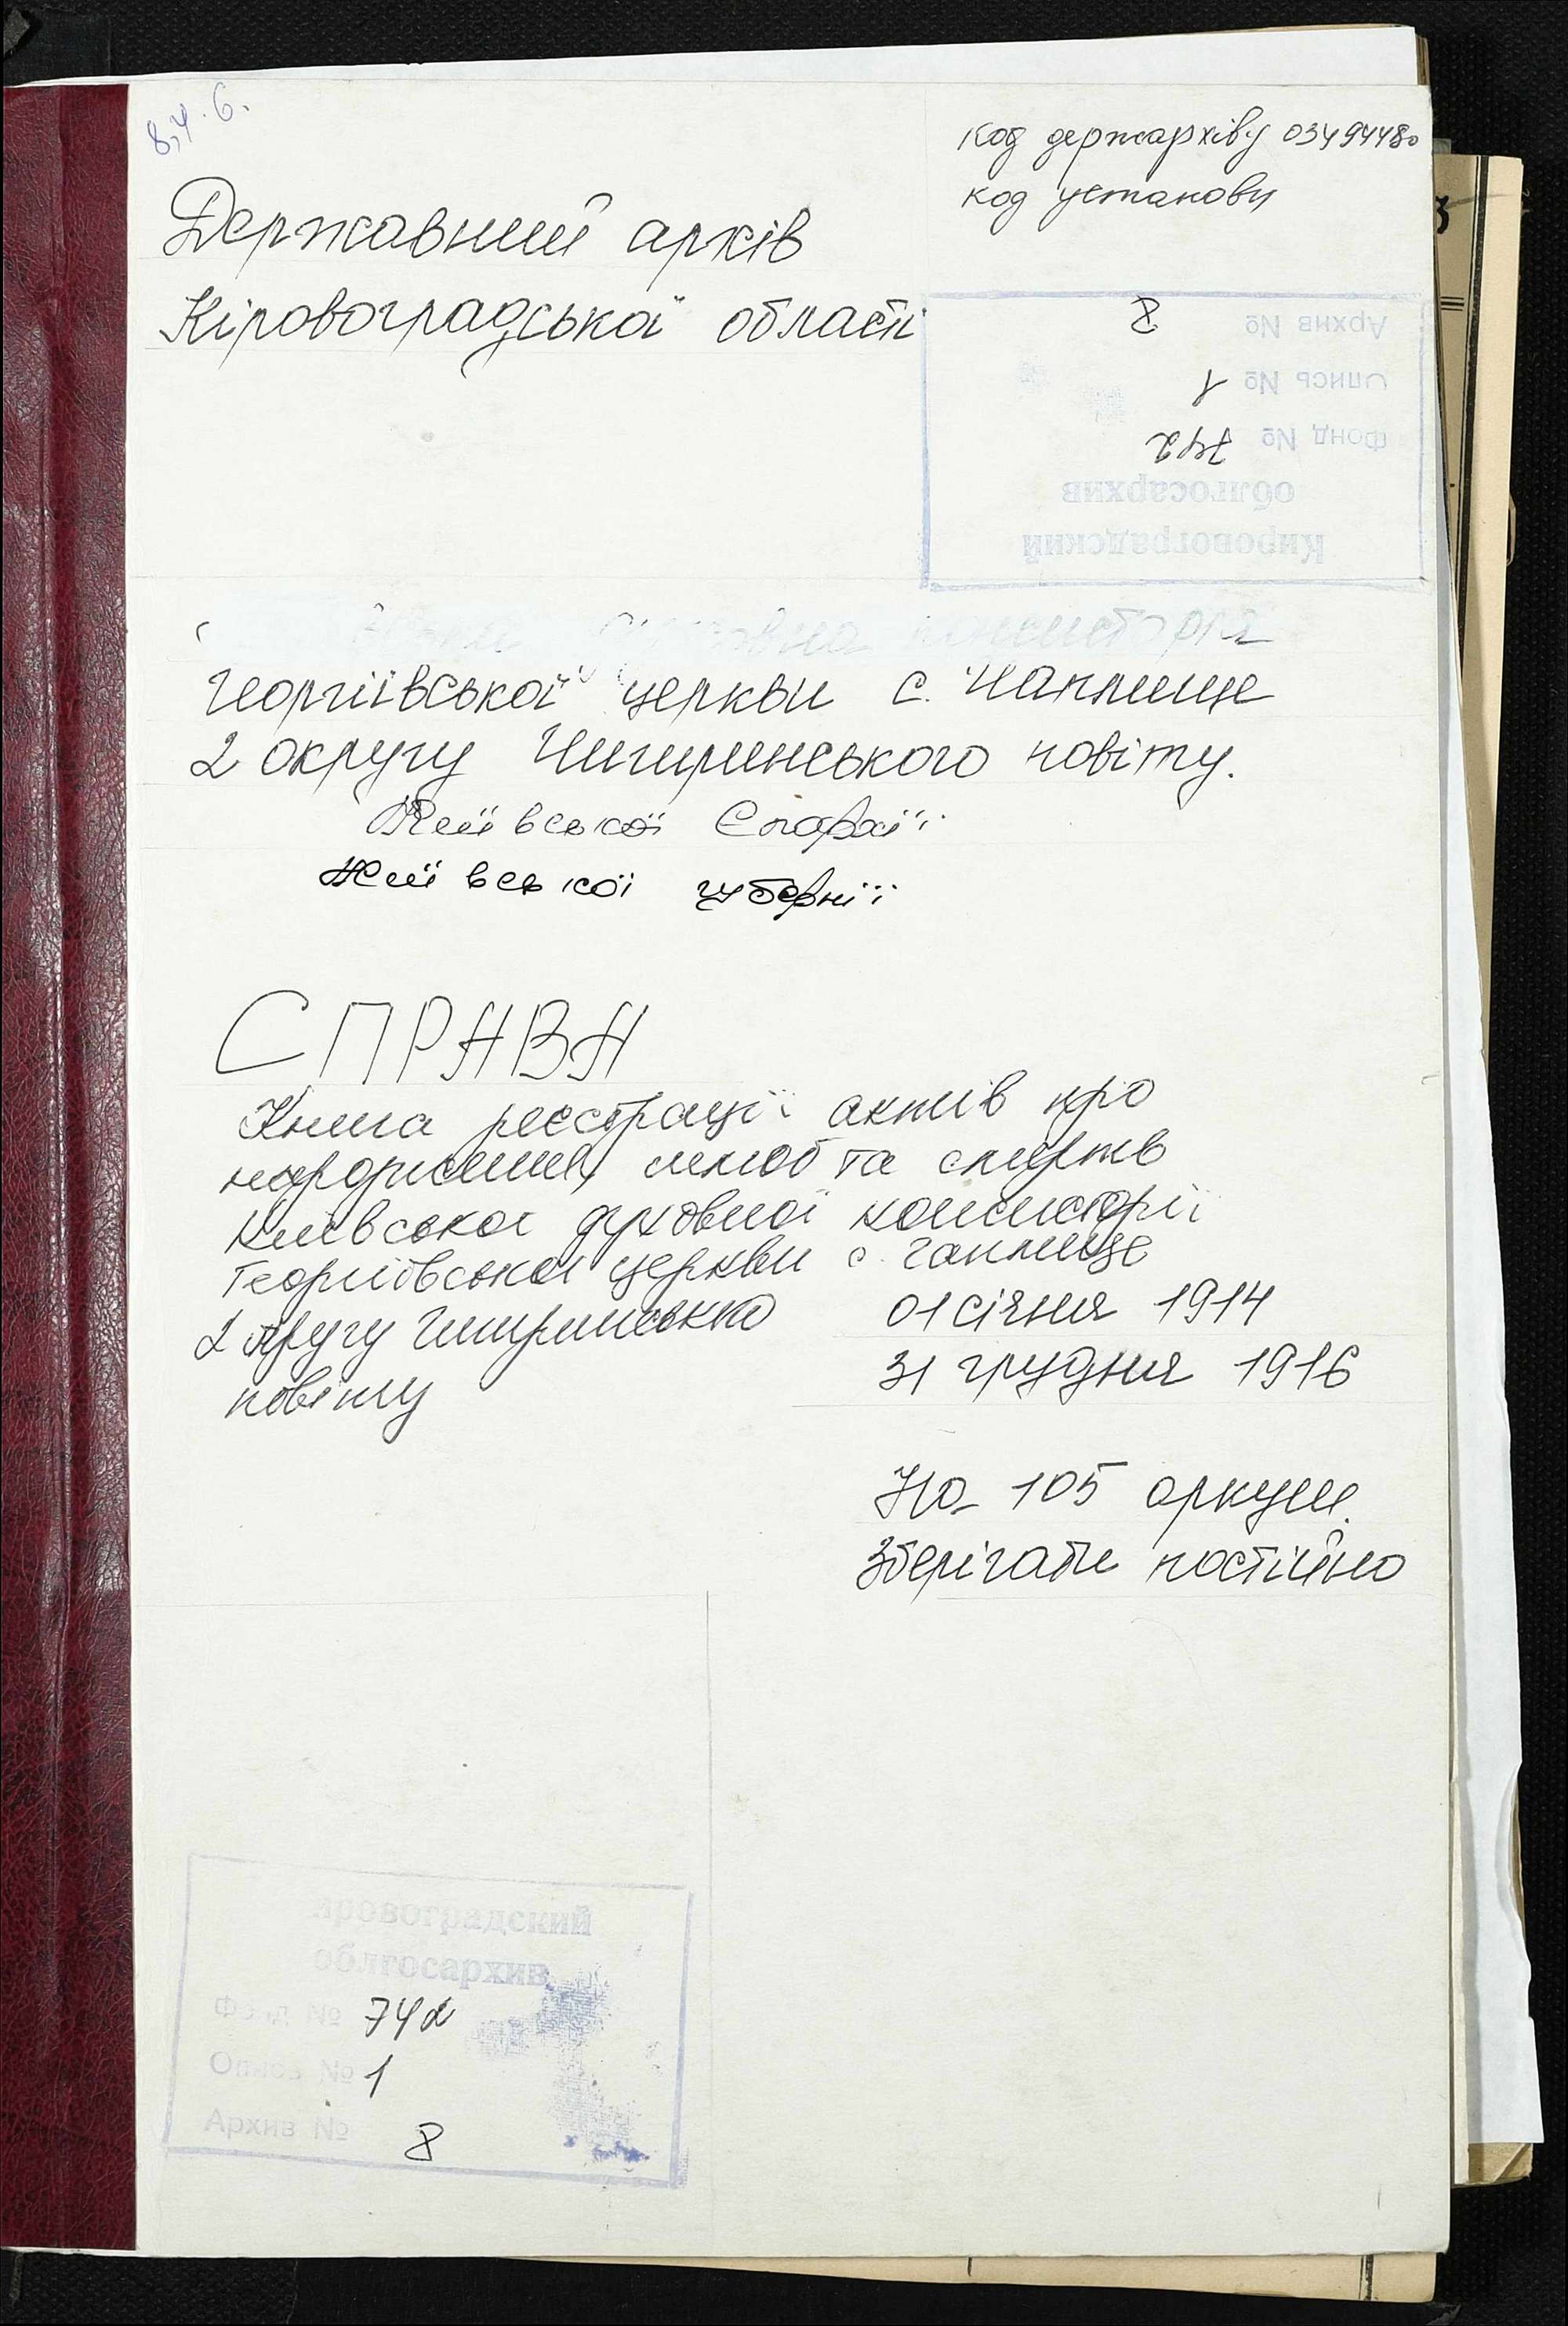 8.4.6.
код держархіву 03494480
код установи
Державний архів
Кіровоградської області
Архив № 8
Опись № 1
Фонд № 742
облгосархив
Кировоградский
духовна консисторія
Георгіївської церкви с. Чаплище
2 округу Чигиринського повіту.
Київської Єпархії
Київської губернії
СПРАВА
Книга реєстрації актів про
народження, шлюб та смерть
Київської духовної консисторії
Георгіївської церкви с. Чаплище
2 округу Чигиринського
повіту
01 січня 1914
31 грудня 1916
На 105 аркуш.
Зберігати постійно
ировоградский
облгосархив
Фонд № 742
Опись № 1
Архив № 8